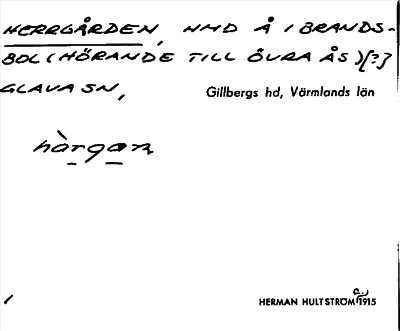 HERRGÅRDEN, HMD Å I BRANDS-
BOL (HÖRANDE TILL ÖVRA ÅS)[?]
GLAVA SN, Gillbergs hd, Värmlands län
hàrgan
/ HERMAN HULTSTRÖM a. 1915